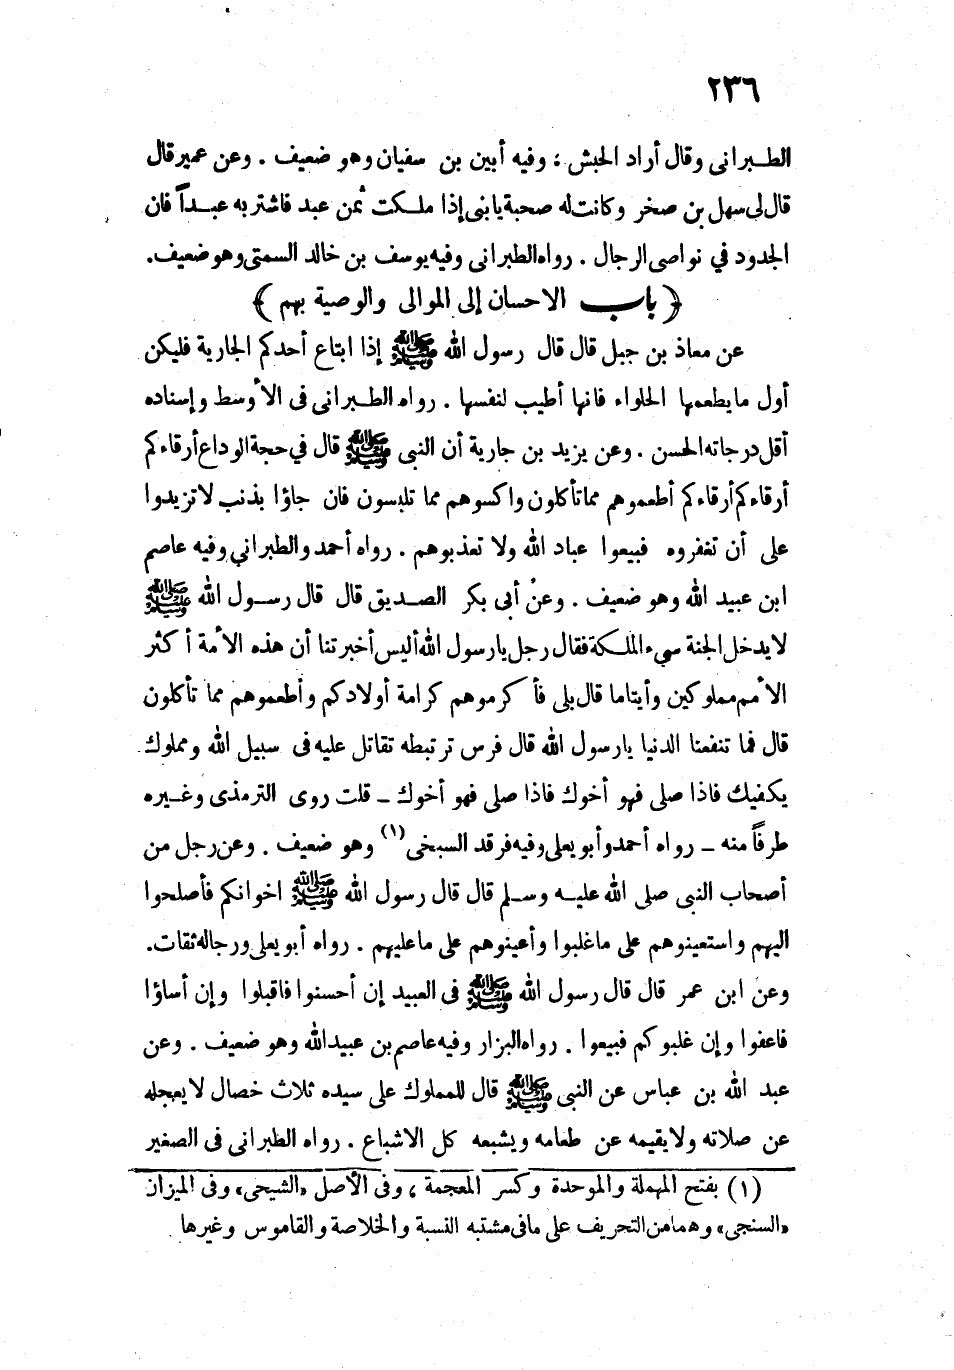 ٢٣٦
الطبرانى وقال أراد الحبش ؛ وفيه أبين بن سفيان وهو ضعيف . وعن عمير قال
قال لى سهل بن صخر وكانت له صحبة يابنى إذا ملكت ثمن عبد فاشتر به عبداً فان
الجدود في نواصى الرجال . رواه الطبرانى وفيه يوسف بن خالد السمتى وهو ضعيف.
﴿ باب الاحسان إلى الموالى والوصية بهم ﴾
عن معاذ بن جبل قال قال رسول الله ﷺ إذا ابتاع أحدكم الجارية فليكن
أول ما يطعمها الحلواء فانها أطيب لنفسها . رواه الطبرانى فى الأوسط وإسناده
أقل درجاته الحسن . وعن يزيد بن جارية أن النبى ﷺ قال في حجة الوداع أرقاءكم
أرقاءكم أرقاءكم أطعموهم مما تأكلون واكسوهم مما تلبسون فان جاؤا بذنب لا تزيدوا
على أن تغفروه فبيعوا عباد الله ولا تعذبوهم . رواه أحمد والطبراني وفيه عاصم
ابن عبيد الله وهو ضعيف . وعن أبى بكر الصديق قال قال رسول الله ﷺ
لا يدخل الجنة سيء الملكة فقال رجل يارسول الله أليس أخبرتنا أن هذه الأمة أكثر
الأمم مملوكين وأيتاما قال بلى فأكرموهم كرامة أولادكم وأطعموهم مما تأكلون
قال فما تنفعنا الدنيا يارسول الله قال فرس ترتبطه تقاتل عليه فى سبيل الله ومملوك
يكفيك فاذا صلى فهو أخوك فاذا صلى فهو أخوك - قلت روى الترمذى وغيره
طرفاً منه - رواه أحمد وأبو يعلى وفيه فرقد السبخى (١) وهو ضعيف . وعن رجل من
أصحاب النبى صلى الله عليه وسلم قال قال رسول الله ﷺ اخوانكم فأصلحوا
اليهم واستعينوهم على ما غلبوا وأعينوهم على ما عليهم . رواه أبو يعلى ورجاله ثقات.
وعن ابن عمر قال قال رسول الله ﷺ فى العبيد إن أحسنوا فاقبلوا وإن أساؤا
فاعفوا وإن غلبوكم فبيعوا . رواه البزار وفيه عاصم بن عبيد الله وهو ضعيف . وعن
عبد الله بن عباس عن النبى ﷺ قال للمملوك على سيده ثلاث خصال لا يعجله
عن صلاته ولا يقيمه عن طعامه ويشبعه كل الاشباع . رواه الطبرانى فى الصغير
(١) بفتح المهملة والموحدة وكسر المعجمة ، وفى الأصل «الشيحى» وفى الميزان
«السنجى» وهما من التحريف على مافى مشتبه النسبة والخلاصة والقاموس وغيرها .